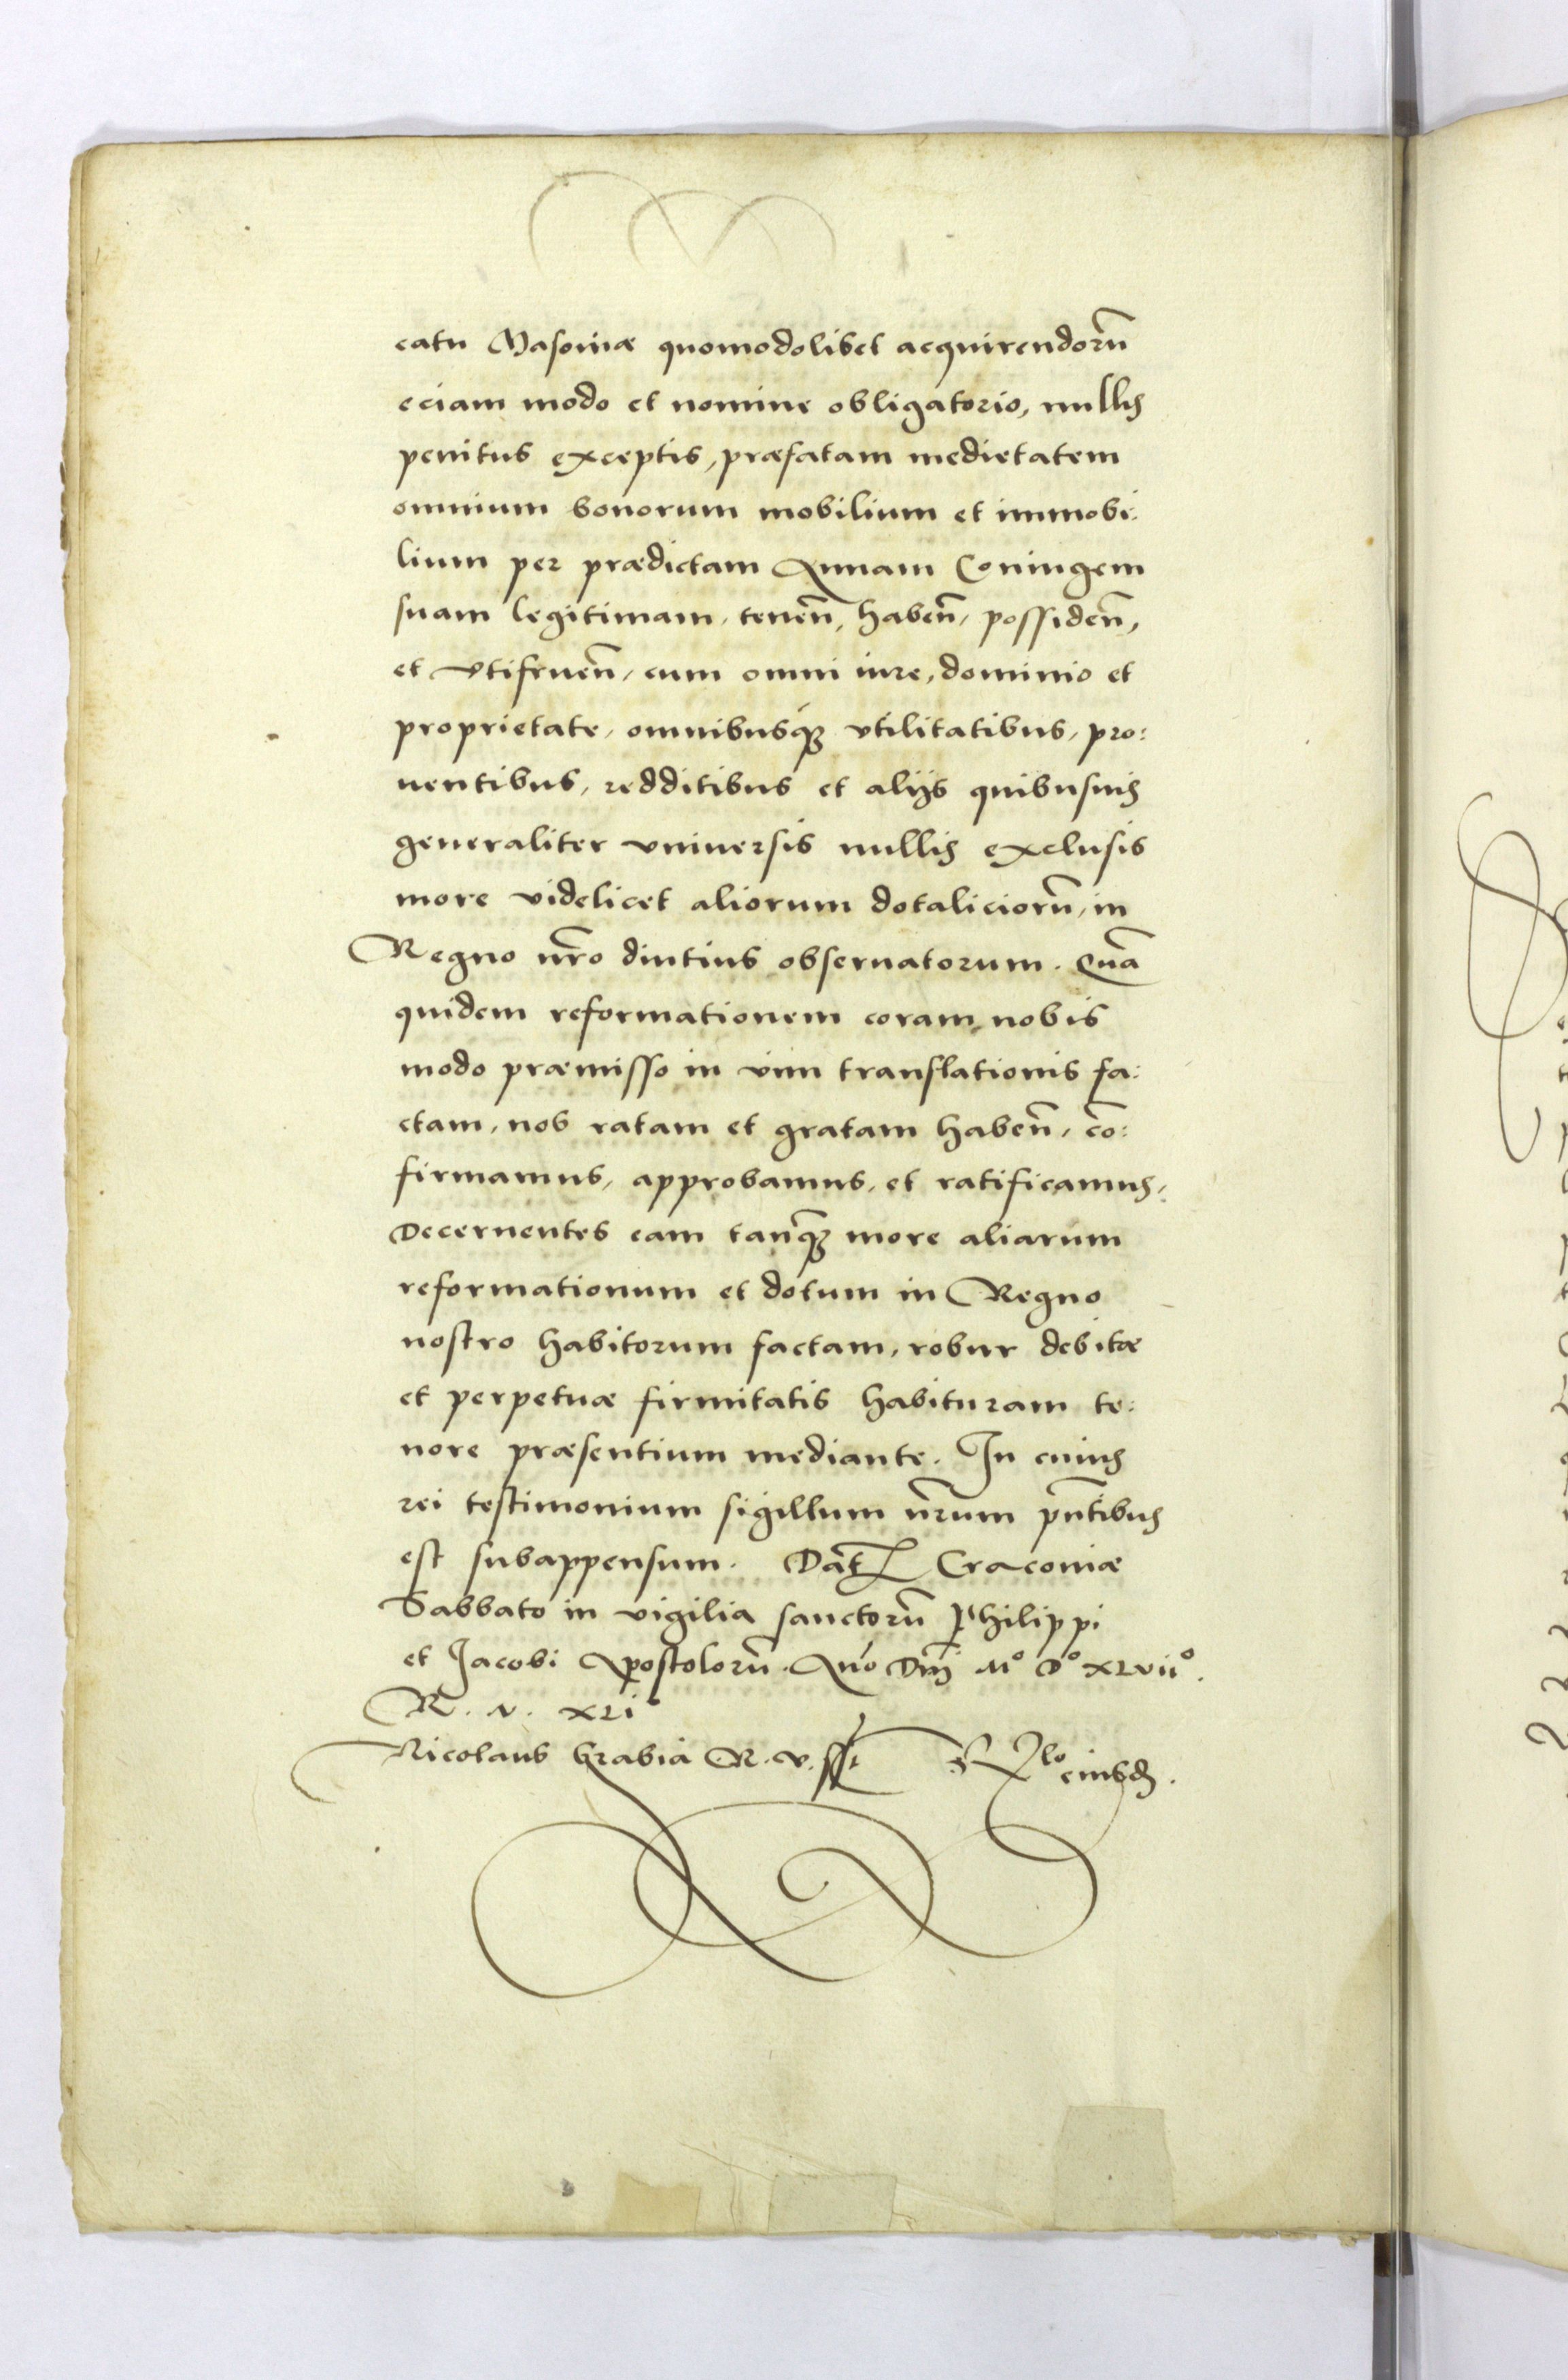 catu Masoviæ quomodolibet acquirendorũ
eciam modo et nomine obligatorio, nullis
penitus exceptis, præfatam medietatem
omnium bonorum mobilium et immobi:
lium per prædictam Annam Coniugem
suam legitimam, tenen̄, haben̄, possiden̄,
et vtifruen̄, cum omni iure, dominio et
proprietate, omnibusq́ꝫ vtilitatibus, pro:
uentibus, redditibus et alijs quibusuis
generaliter vniuersis nullis exclusis
more videlicet aliorum dotaliciorũ, in
Regno nr̃o diutius obseruatorum. Quã
quidem reformationem coram nobis
modo præmisso in vim translationis fa:
ctam, nos ratam et gratam haben̄, cõ:
firmamus, approbamus, et ratificamus,
Decernentes eam tanq̃ꝫ more aliarum
reformationum et dotum in Regno
nostro habitorum factam, robur debitæ
et perpetuæ firmitatis habituram te:
nore præsentium mediante. In cuius
rei testimonium sigillum nr̃um pn̄tibus
est subappensum. Dat̃ Cracoviæ
Sabbato in vigilia sanctorũ Philippi
et Jacobi Apostolorũ. Año Dn̄i M° D° XLVII°.
R. N. XLI
Nicolaus Grabia R. V. sst
eiusdꝫ.